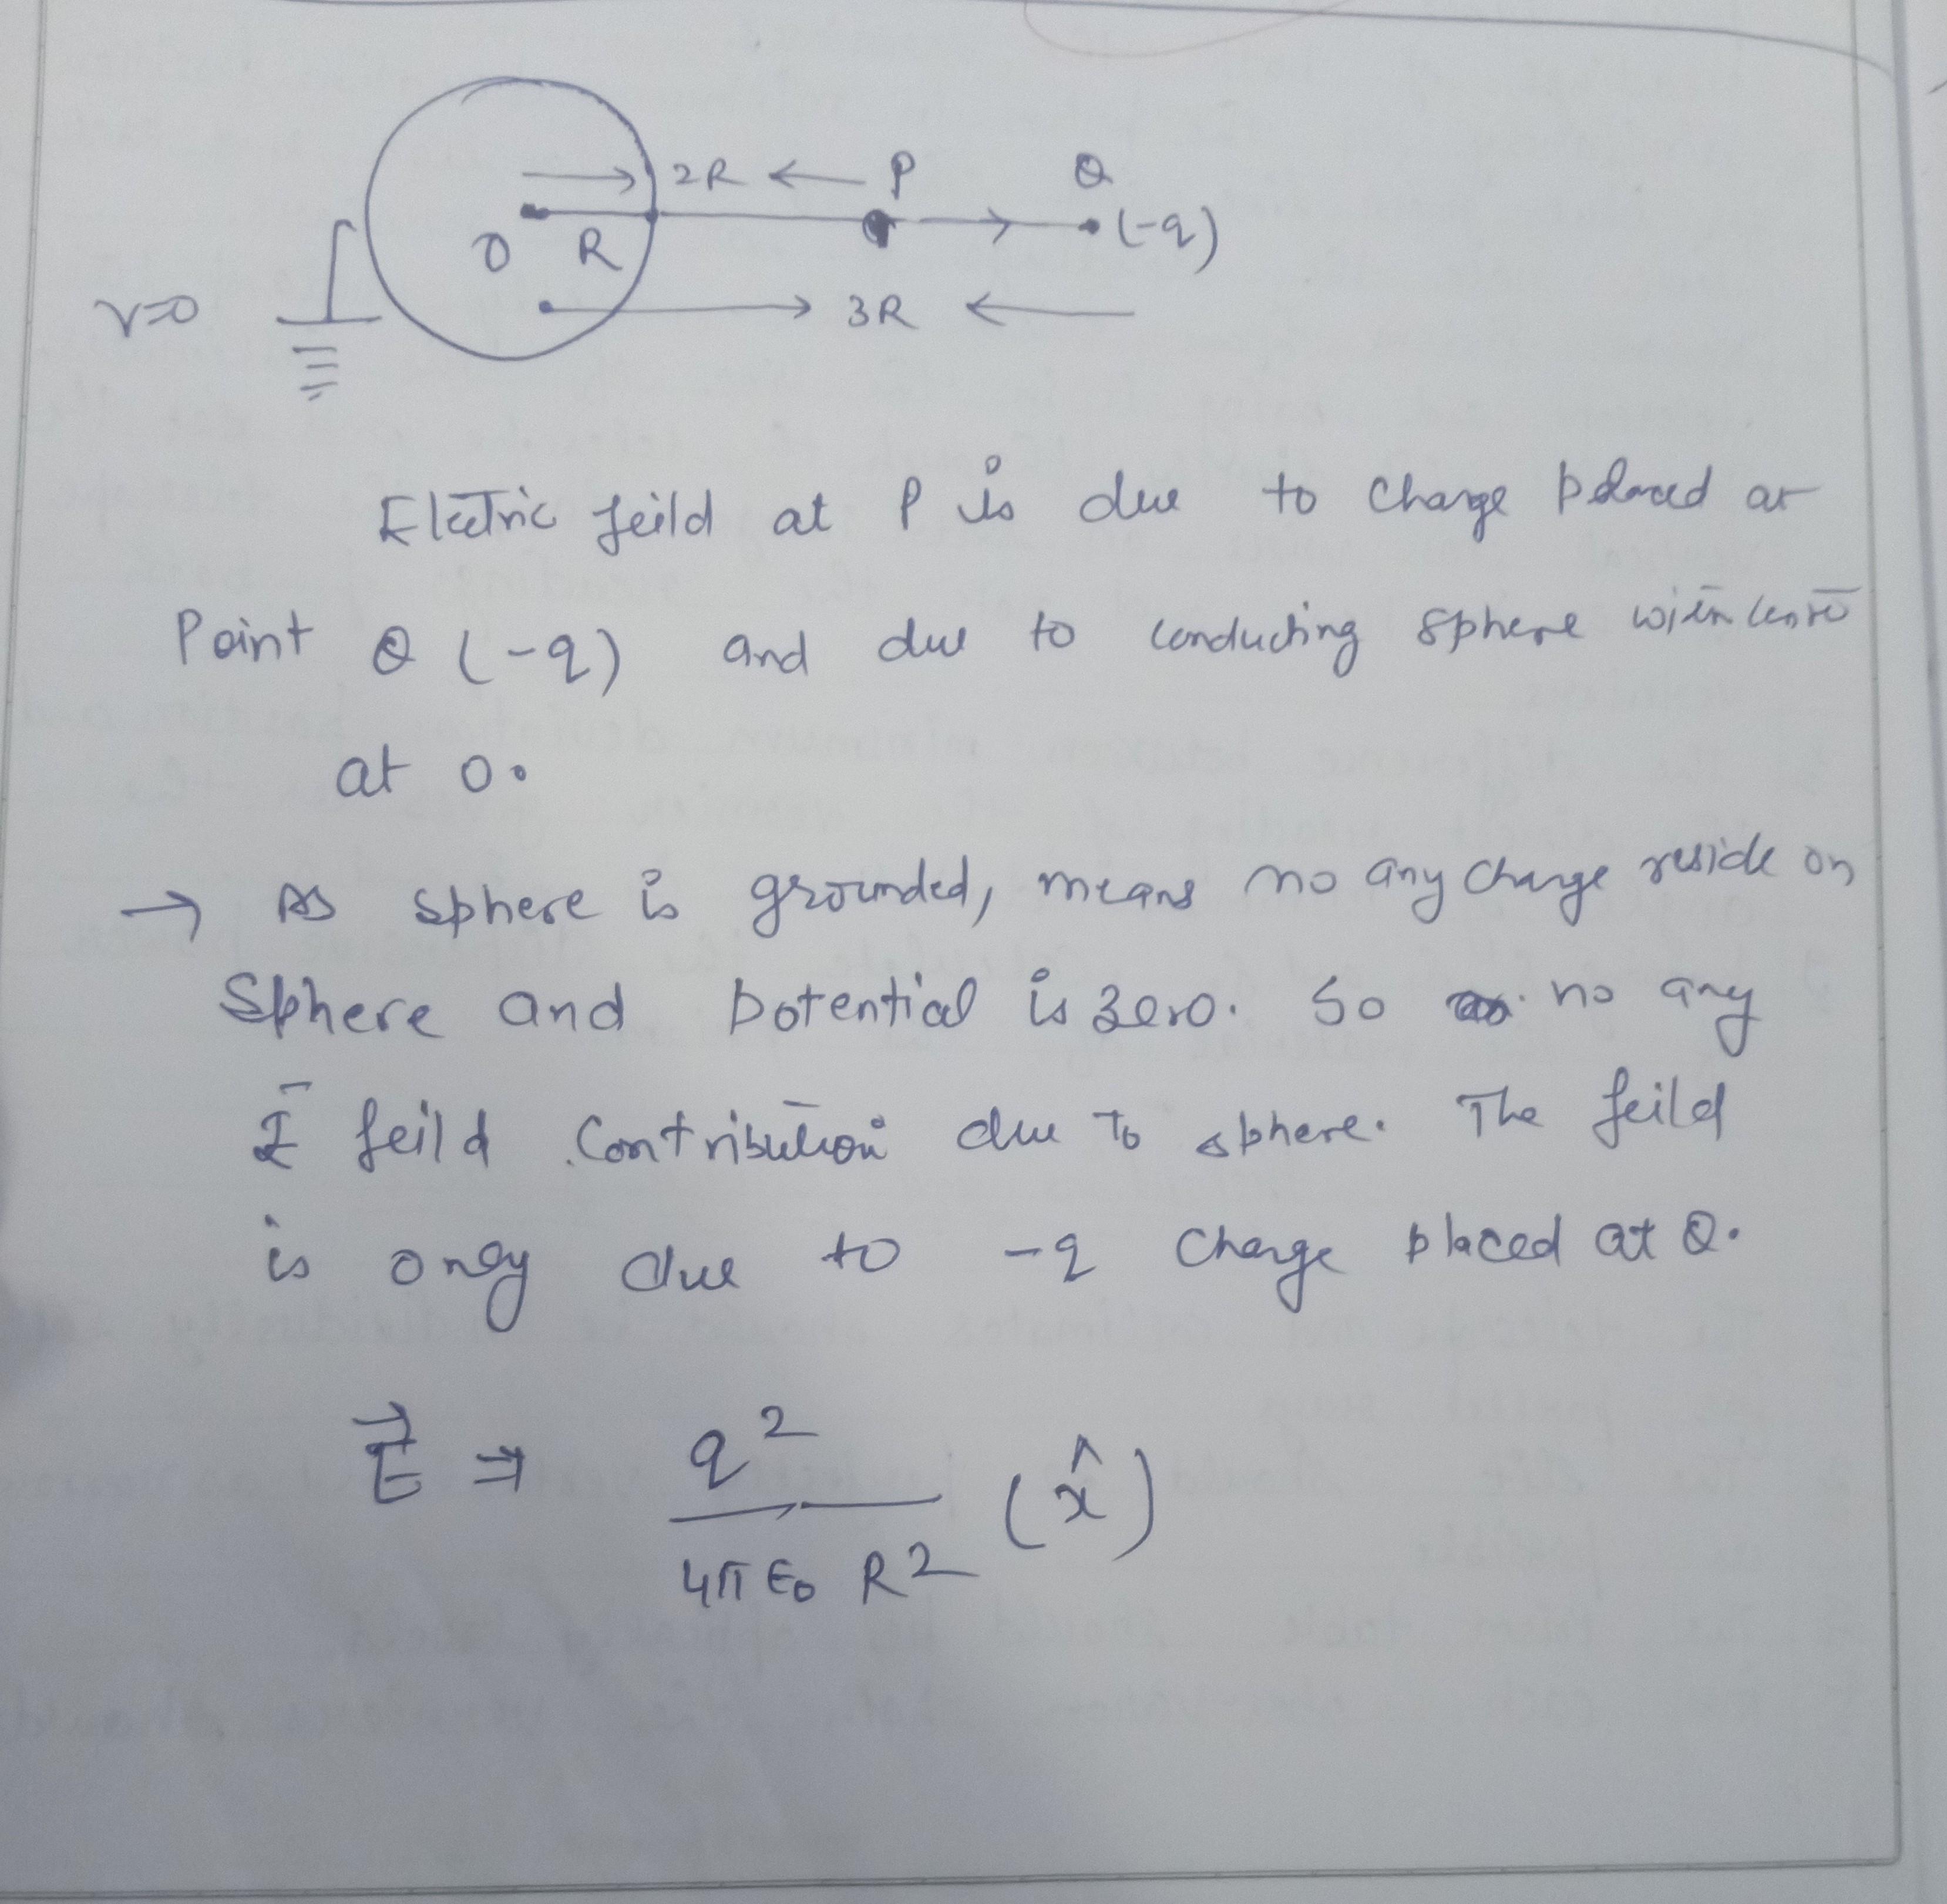 2R ← P Q
O R (-q)
V=0
3R
Electric feild at P is due to charge placed at
Point Q (-q) and due to conducting sphere with centre
at O.
→ As sphere is grounded, means no any charge reside on
sphere and potential is zero. So no any
E feild contribution due to sphere. The feild
is only due to -q charge placed at Q.
E⃗ ⇒ q² / 4π ε₀ R² (x̂)